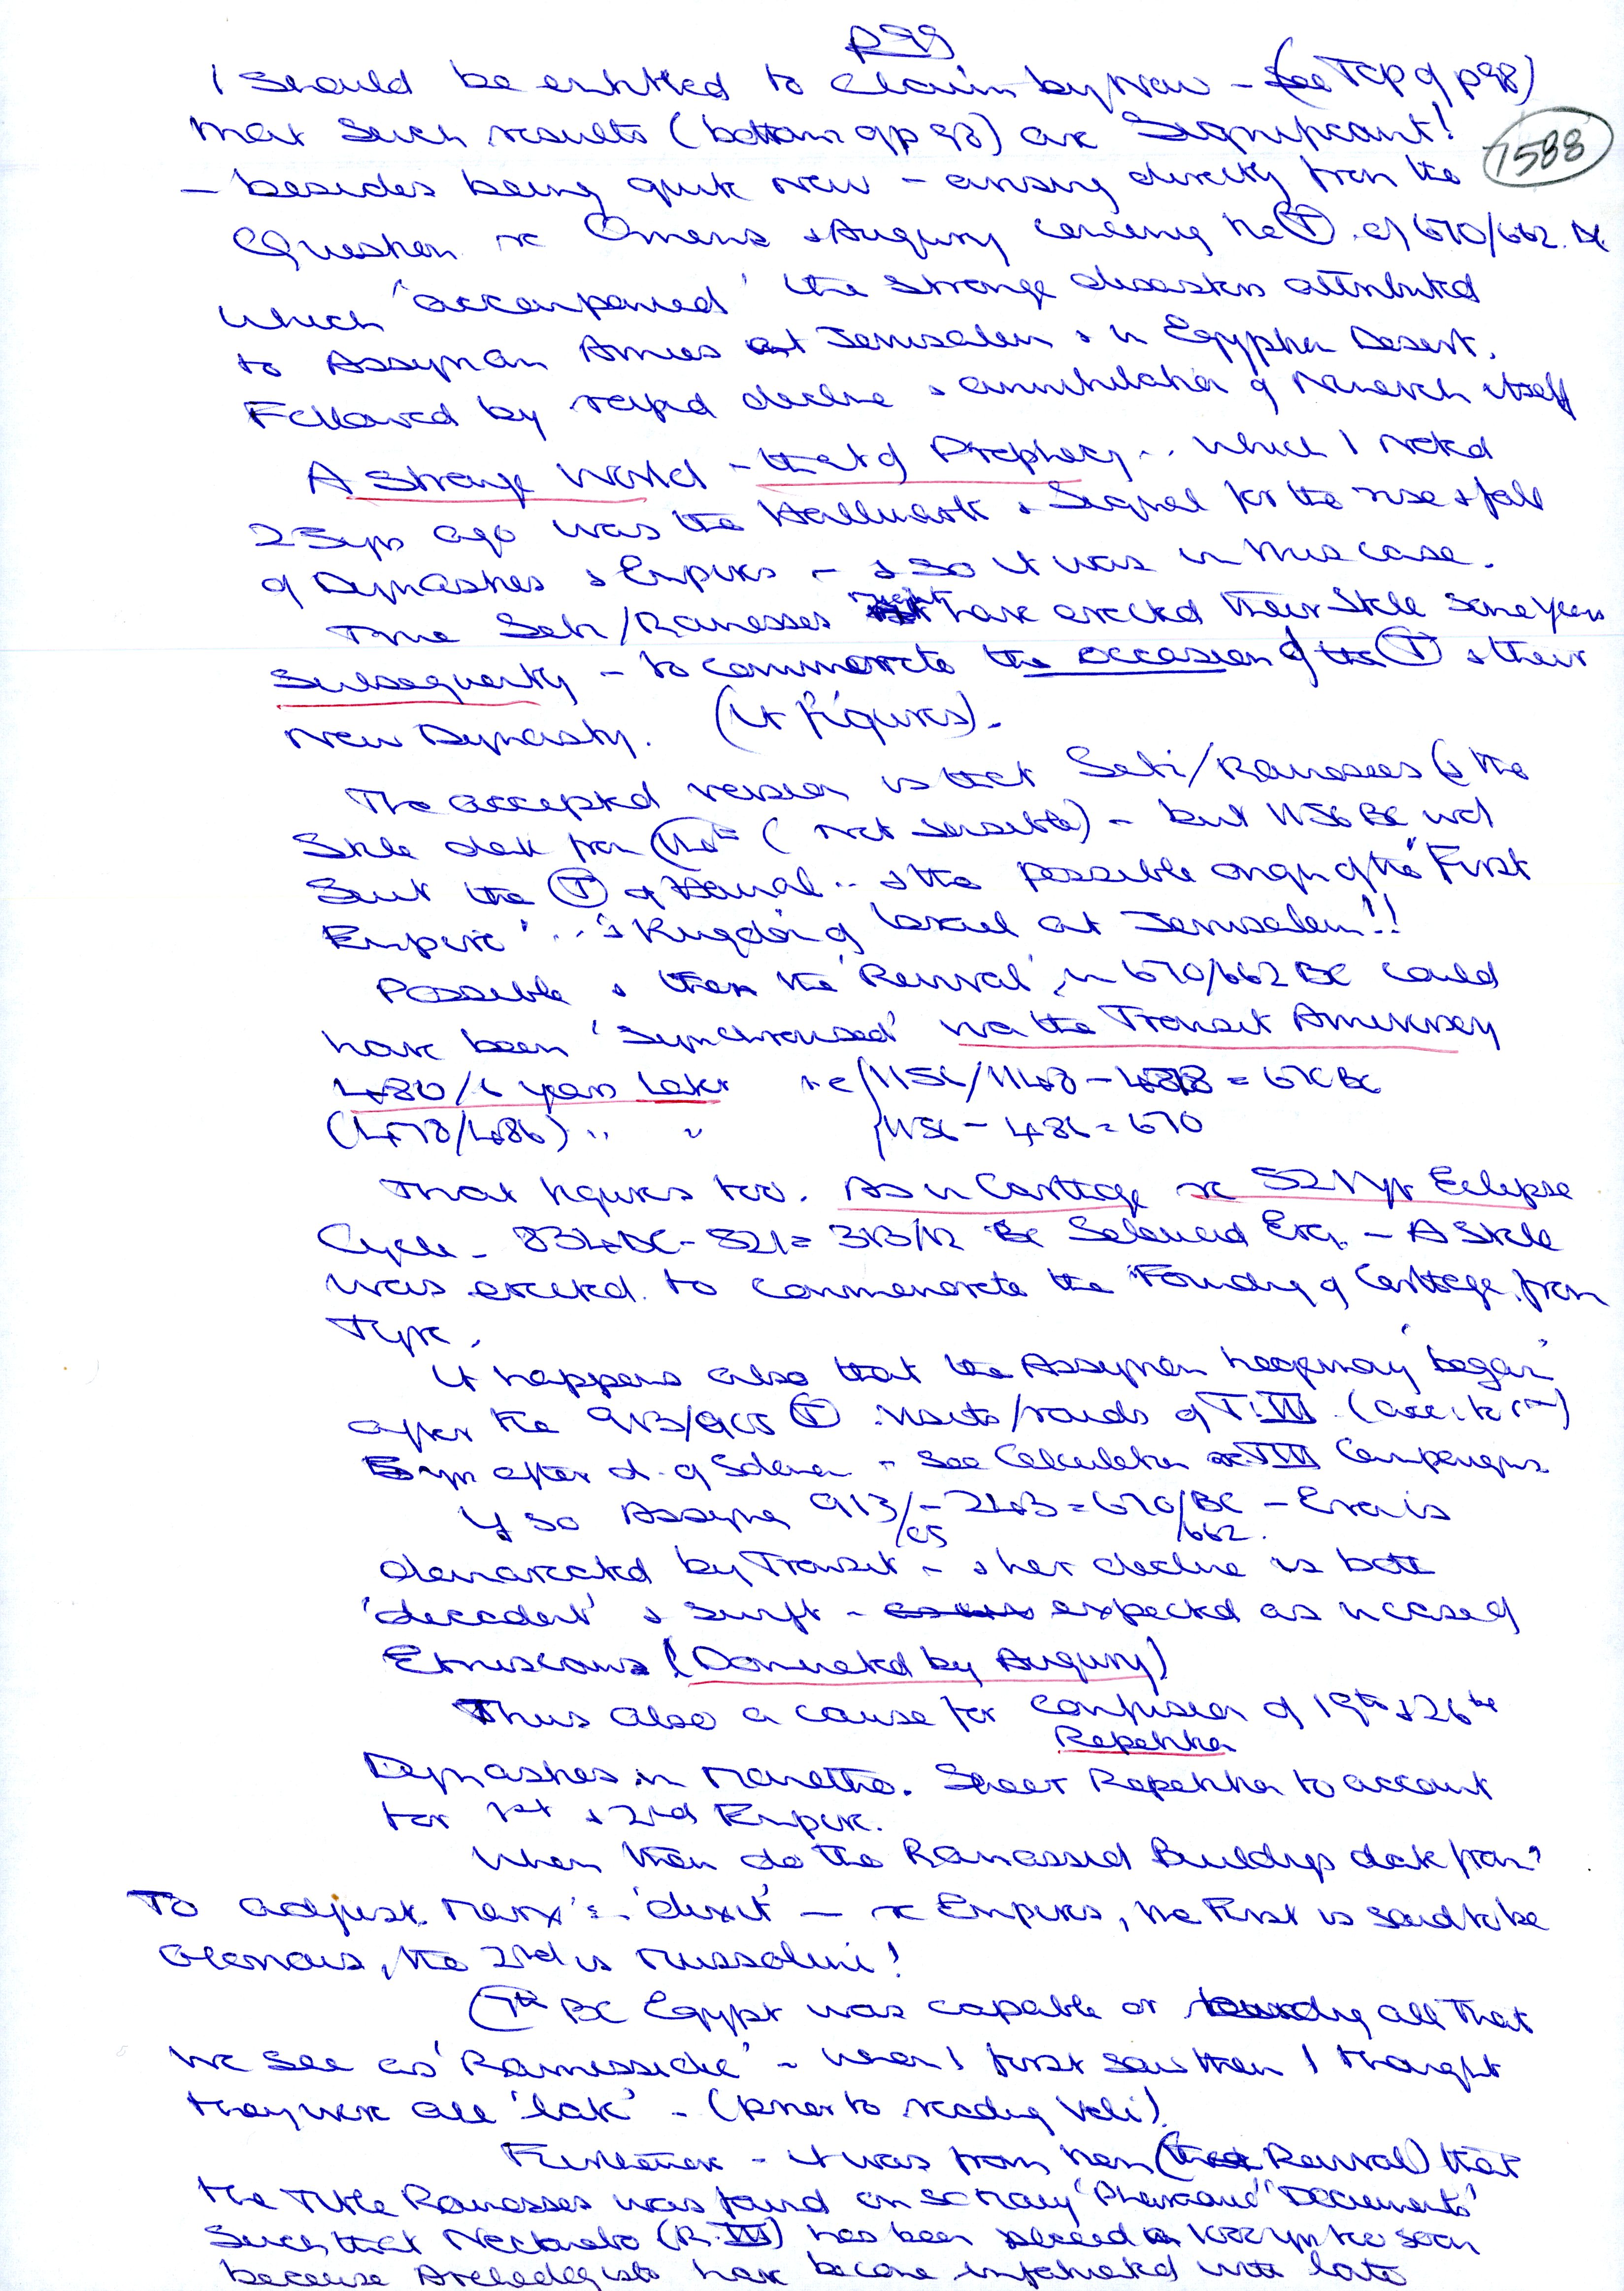 p99
I should be entitled to claim by now - (see Top of p98)
that such results (bottom of p 98) are Significant!
1588
- besides being quite new - arising directly from the
Question re Omens & Augury concerning the (T) of 670/662. BC
which 'accompanied' the strange disasters attributed
to Assyrian Armies at Jerusalem & in Egyptian Desert.
Followed by rapid decline & annihilation of Nineveh itself
A strange World - that of Prophecy .. which I noted
25 yrs ago was the Hallmark & Signal for the rise & fall
of Dynasties & Empires - & so it was in this case.
The Seti/Ramesses might have erected their Stele some years
subsequently - to commemorate the occasion of the (T) & their
New Dynasty. (it figures).
The accepted version is that Seti/Ramesses (& the
Stele date from (not sensible) - but 1156 BC wd
Suit the (T) of .. & the possible origin of the "First
Empire' ... & Kingdom of Israel at Jerusalem!!
Possible & then the 'Revival' in 670/662 BC could
have been 'Synchronised' via the Transit Anniversary
480/6 years later ie (1156/1148 - 478 = 670 BC
(478/486) " " 1156 - 486 = 670
That figures too. As in Carthage re 521 yr Eclipse
Cycle - 834 BC - 521 = 313/12 BC Seleucid Era. - A Stele
was erected. to commemorate the 'Founding of Carthage from
Tyre.
It happens also that the Assyrian hegemony 'began'
after the 913/905 (T) visits/raids of T.III.
5 yrs after d. of Solomon - see Calculation re TIII Campaigns
If so Assyria 913/05 - 243 = 670/662 BC - Era is
demarcated by Transit - & her decline is both
'decadent' & swift - expected as in case of
Etruscans (Dominated by Augury)
Thus also a cause for confusion of 19th & 26th
Repetition
Dynasties in Manetho. Sheer Repetition to account
for 1st & 2nd Empire.
When then do the Ramessid Buildings date from?
To adjust Marx's 'dixit' - re Empires, the First is said to be
Glorious, the 2nd is Mussolini!
(7th BC Egypt was capable of all that
we see as 'Ramesside' - when I first saw them I thought
they were all 'late' - (prior to reading Veli).
Furthermore - it was from then (that Revival) that
the Title Ramesses was found on so many 'Pharaonic' 'Documents'
Such that Nectanebo (R.III) has been placed yrs too soon
because Archeologists have become infatuated with late